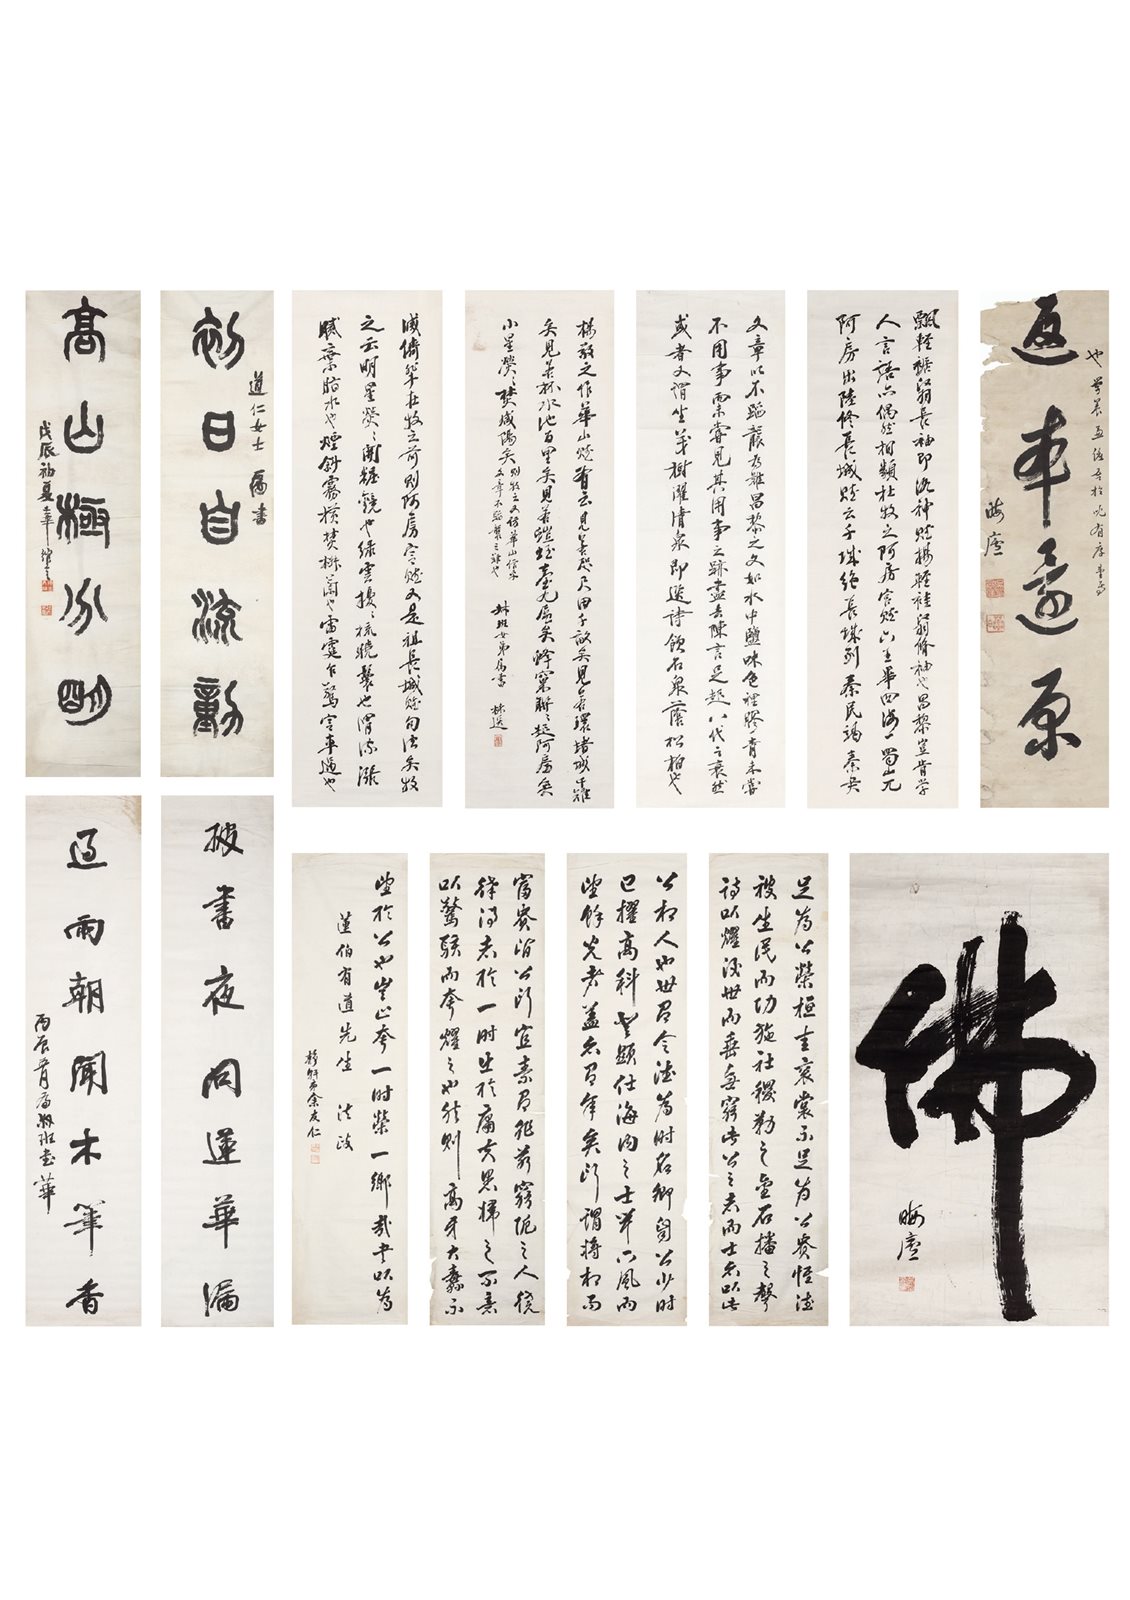 返本還原
晦廬
飄輕裾翳長袖即洛神賦揚輕袿翳修袖也昌黎豈肯學
人言語亦偶然相類杜牧之阿房宮賦六王畢四海一蜀山兀
阿房出陸傪長城賦云千城絕長城列秦民竭秦君
文章以不蹈襲為難昌黎之文如水中鹽味色裡膠青未嘗
不用事而未嘗見其用事之跡盡去陳言足起八代之衰然
或者又謂坐茂樹濯清泉即選詩飲石泉蔭松柏也
楊敬之作華山賦有云見若咫尺田千畝矣見若環堵城千雉
矣見若杯水池百里矣見若蟻垤臺九層矣蜂窠聯〻起阿房矣
小星熒〻焚咸陽矣
叔班女弟屬書
林選
滅儔輩在牧之前則阿房宮賦又是祖長城賦句法矣牧
之云明星熒〻開粧鏡也綠雲擾〻梳曉鬟也渭流漲
膩棄脂水也煙斜霧橫焚椒蘭也雷霆乍驚宮車過也
初日自流動
道仁女士屬書
高山極分明
戊辰初夏
佛
晦廬
足為公榮桓圭袞裳不足為公貴惟德
被生民而功施社稷勒之金石播之聲
詩以耀後世而垂無窮此公之志而士亦以此
公相人也世有令德為時名卿自公少時
已擢高科登顯仕海內之士聞下風而
望餘光者蓋亦有年矣所謂將相而
富貴皆公所宜素有非如窮阨之人僥
倖得志於一時出於庸夫愚婦之不意
以驚駭而夸耀之也然則高牙大纛不
望於公也豈止夸一時榮一鄉哉以為
蓮伯有道先生 法政
弟余友仁
披書夜問蓮華漏
過雨朝聞木筆香
丙辰